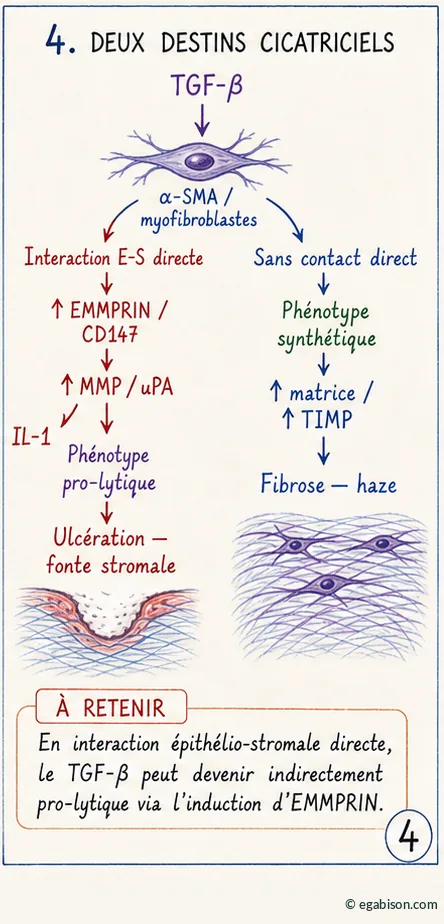 4. DEUX DESTINS CICATRICIELS
TGF-β
α-SMA /
myofibroblastes
Interaction E-S directe
↑ EMMPRIN /
CD147
↑ MMP / uPA
IL-1
Phénotype
pro-lytique
Ulcération —
fonte stromale
Sans contact direct
Phénotype
synthétique
↑ matrice /
↑ TIMP
Fibrose — haze
À RETENIR
En interaction épithélio-stromale directe,
le TGF-β peut devenir indirectement
pro-lytique via l'induction d'EMMPRIN.
4
© egabison.com